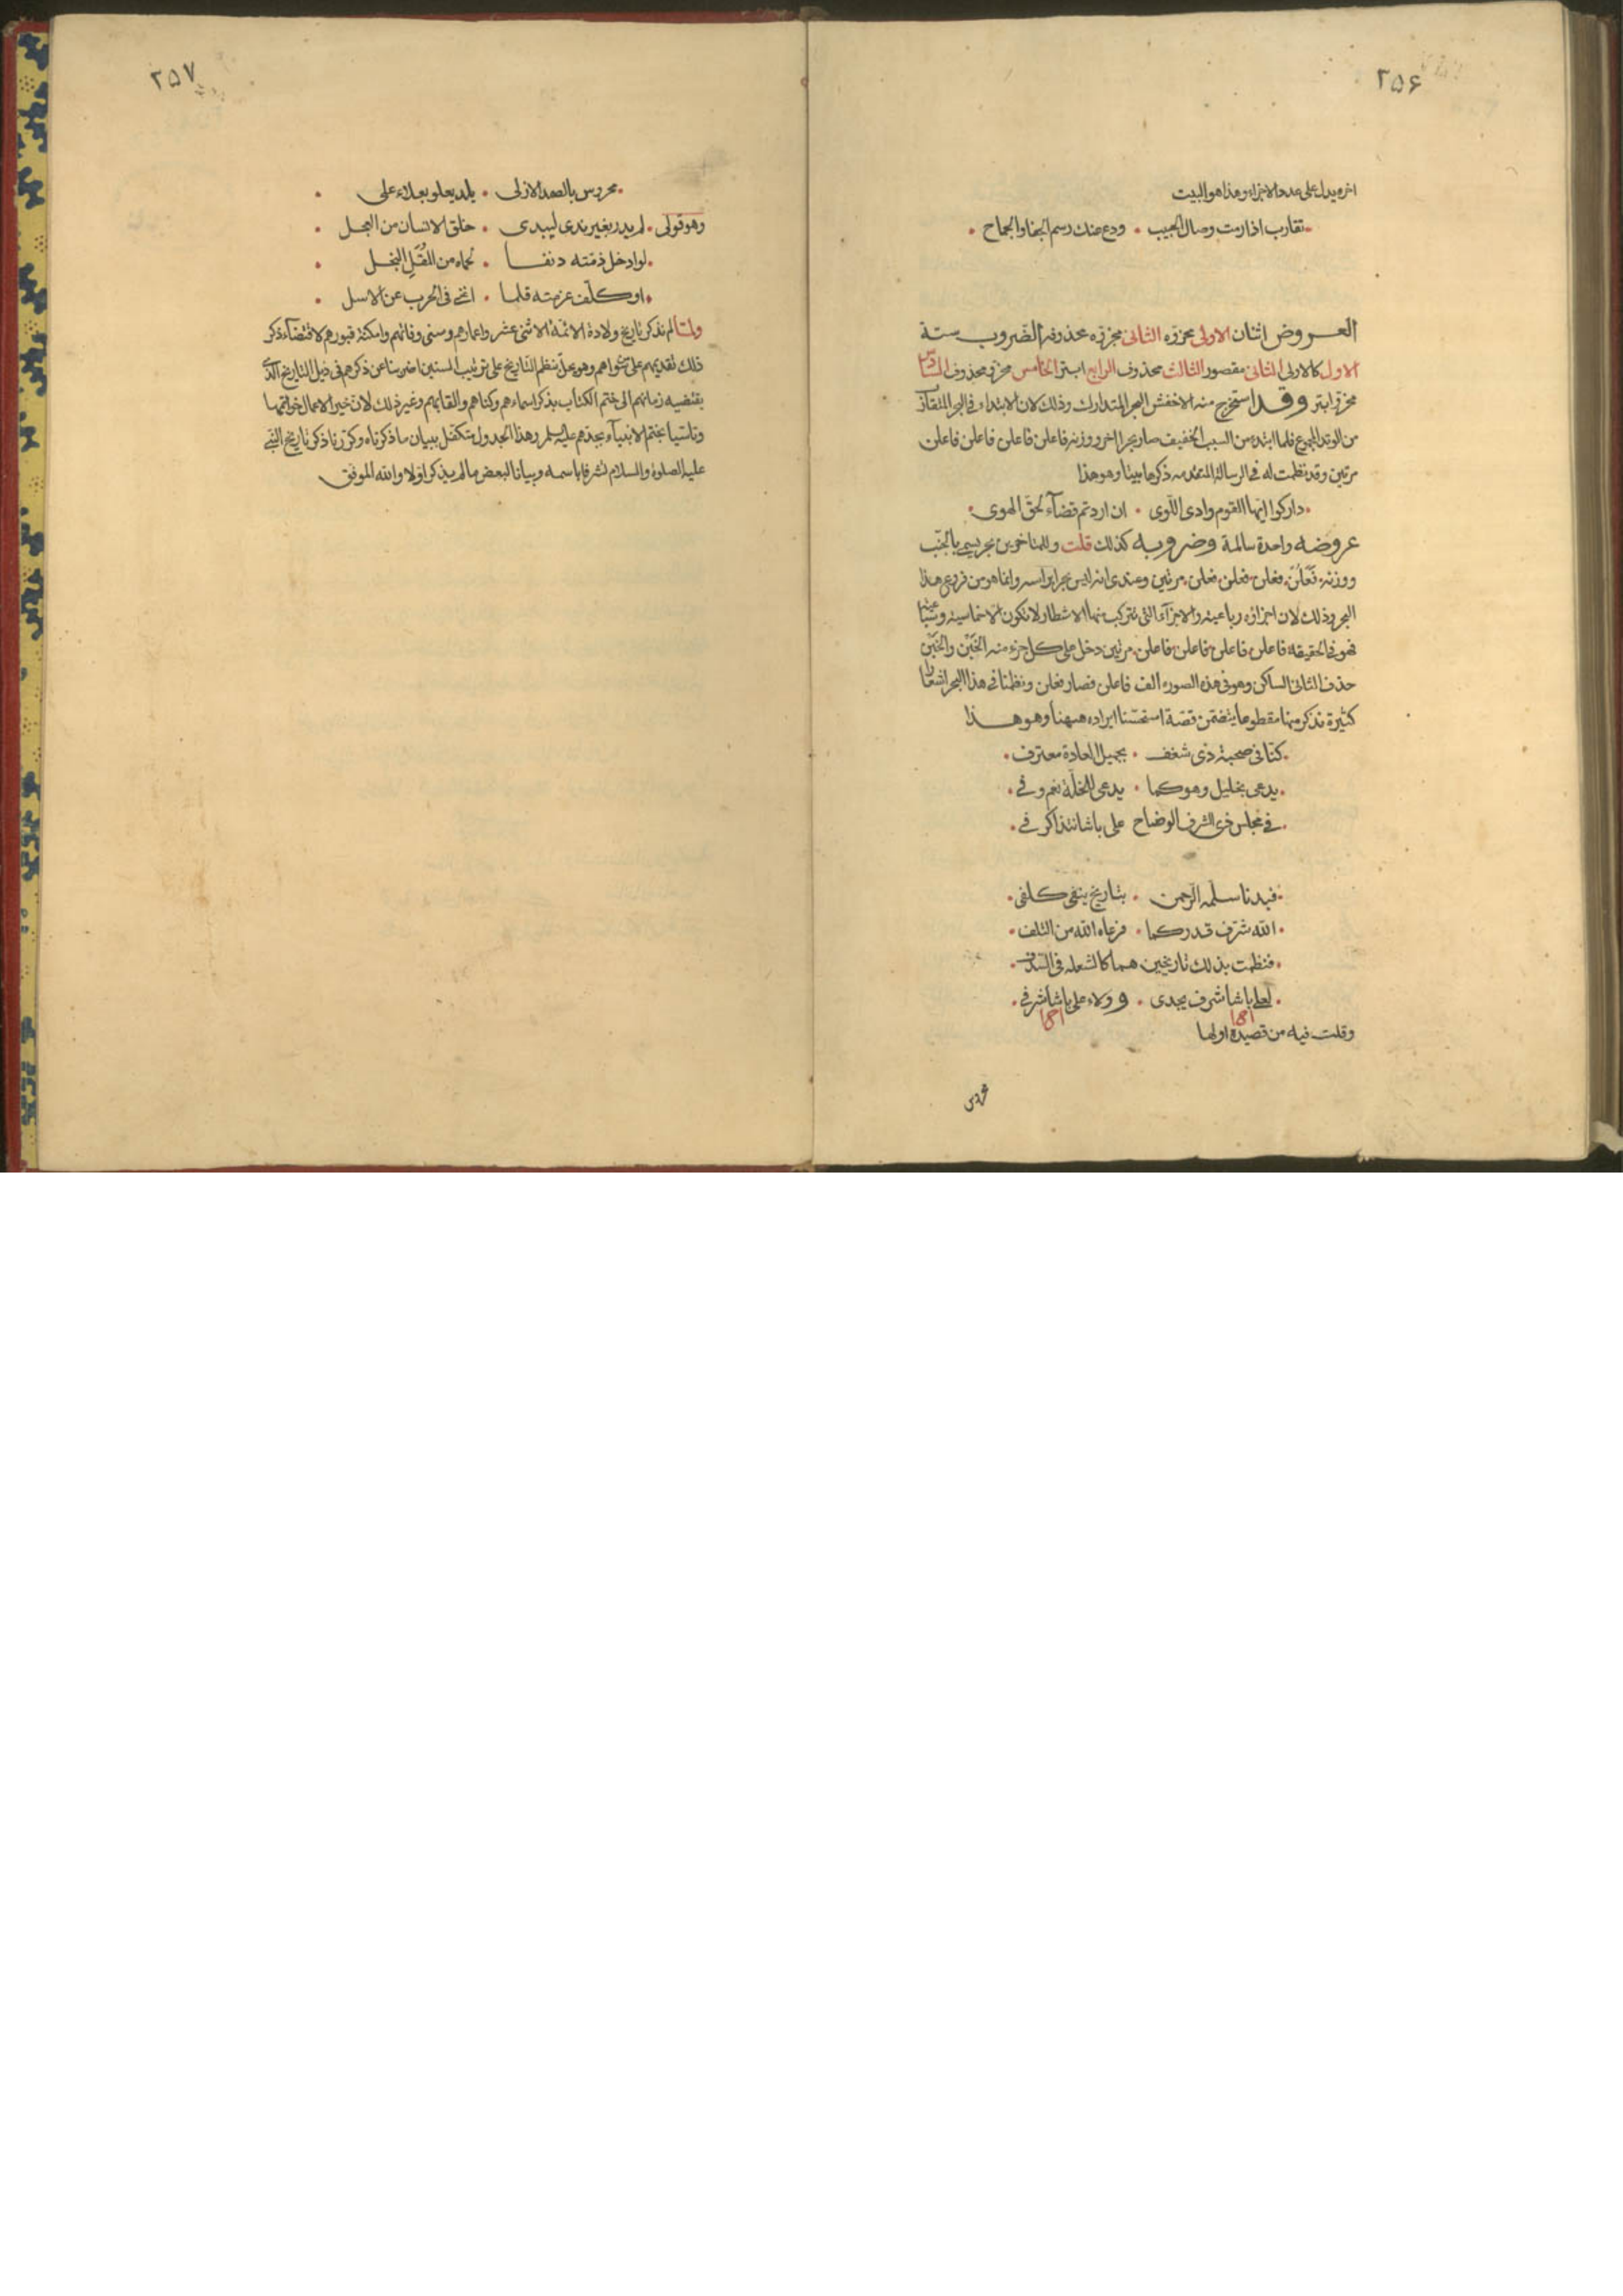 ۲۵۶
اخره يدل على عدد الاجزاء وهذا هو البيت
تقارب اذا رمت وصال الحبيب • ودع عنك رسم الجفا والجماح •
العروض اثنان الاولى مجزوه الثانى مجزوه محذوفه الضروب ستة
الاول كالاولى الثانى مقصور الثالث محذوف الرابع ابتر الخامس مجزو محذوف السادس
مجزو ابتر وقد استخرج منه الاخفش البحر المتدارك وذلك لان الابتداء فى البحر المتقارب
من الوتد المجموع فلما ابتدء من السبب الخفيف صار بحرا اخر ووزنه فاعلن فاعلن فاعلن فاعلن
مرتين وقد نظمت له فى الرسالة المتقدمه ذكرها بيتا وهو هذا
• داركوا ايها القوم وادى اللوى • ان اردتم قضآء لحق الهوى •
عروضه واحدة سالمة وضروبه كذلك قلت وللمتاخرين بحر يسمى بالخبب
ووزنه فعلن فعلن فعلن فعلن مرتين وعندى انه ليس بحرا براسه وانما هو من فروع هذا
البحر وذلك لان اجزاؤه رباعيه والاجزآء التى تتركب منها الاشطار لا تكون الا خماسيه وسباعيه
فهو فى الحقيقة فاعلن فاعلن فاعلن فاعلن مرتين دخل على كل جزء منه الخبن والخبن
حذف الثانى الساكن وهو فى هذه الصوره الف فاعلن فصار فعلن ونظمنا فى هذا البحر اشعارا
كثيرة نذكر منها مقطوعا يتضمن قصة استحسنا ايراده ههنا وهو هذا
• كنا فى صحبة ذى شغف • بجميل العادة معترف •
• يدعى بخليل وهو كما • يدعى للخلة نعم وفى •
• فى مجلس ذى الشرف الوضاح على باشا نتذاكر فى •
• فبدنا سلمه الرحمن • بتاريخ ينفى كلفى •
• الله شرف قدركما • فرعاه الله من التلف •
• فنظمت بذلك تاريخين هما كالشعله فى السدف •
• لعلى باشا شرف يجدى • وولاء على باشا شرفى •
وقلت فيه من قصيده اولها
محروس
۲۵۷
• محروس بالصمد الازلى • بلد يعلو بعلاء على •
وهو قولى • لم يدر بغير ندى ليبدى • خلق الانسان من العجل •
• لو ادخل ذمته دنفا • لحماه من المقل النجل •
• او كلف عزمته قلما • اغنى فى الحرب عن الاسل •
ولما لم نذكر تاريخ ولادة الائمة الاثنى عشر واعمارهم وسنى وفاتهم وامكنة قبورهم لاقتضاء ذكر
ذلك تقديمهم على سواهم وهو مخل بنظم التاريخ على ترتيب السنين اضربنا عن ذكرهم فى ذيل التاريخ الذى
يقتضيه زمانهم الى ختم الكتاب بذكر اسماءهم وكناهم والقابهم وغير ذلك لان خير الاعمال خواتمها
وتاسيا بختم الانبيآء بجدهم عليه السلم وهذا الجدول متكفل ببيان ما ذكرناه وكررنا ذكر تاريخ النبى
عليه الصلوة والسلام تشرفا باسمه وبيانا لبعض ما لم يذكر اولا والله الموفق